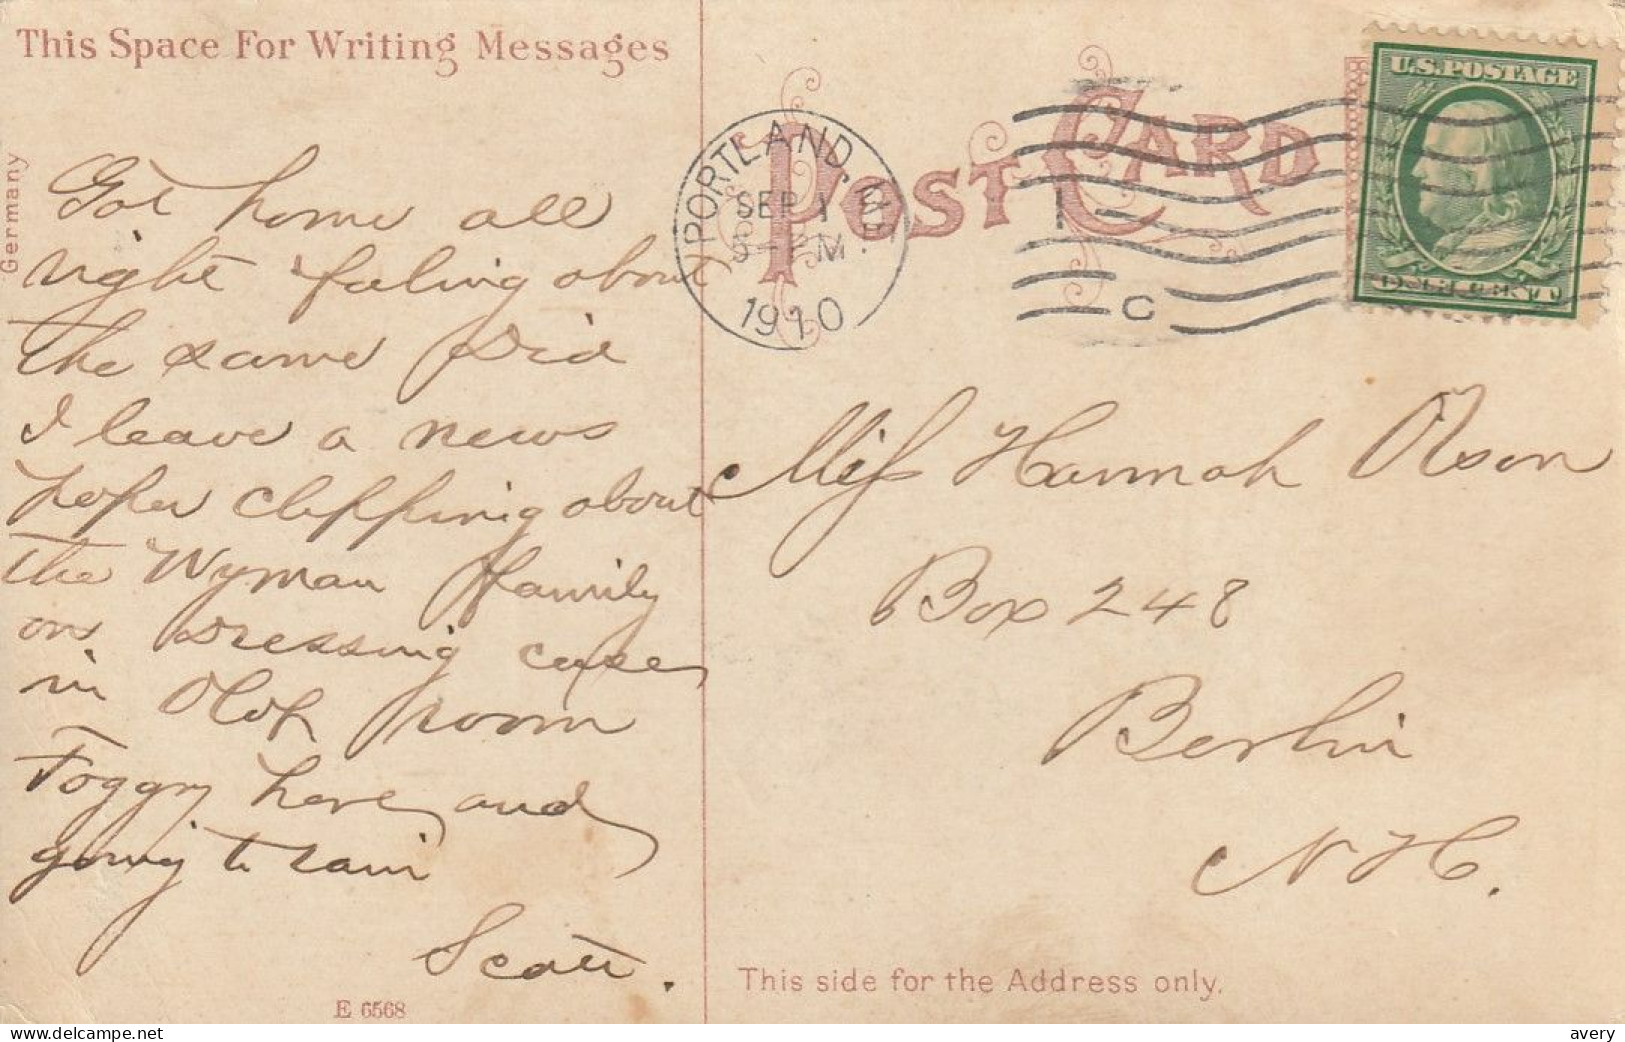 This Space For Writing Messages
Germany
Got home all
right feeling about
the same Did
I leave a news
paper clipping about
the Wyman family
on dressing case
in Olof room
Foggy here and
going to rain
Scott.
E 6568
POST CARD
PORTLAND, ME.
SEP 1
5- PM
1910
C
U.S.POSTAGE
ONE CENT
Miss Hannah Olson
Box 248
Berlin
N H.
This side for the Address only.
www.delcampe.net
avery